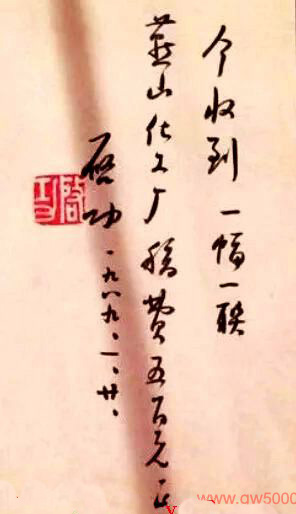 今收到一幅一联
燕山化工厂稿費五百元正
启功一九八九、一、廿、
启功
www.gw5000